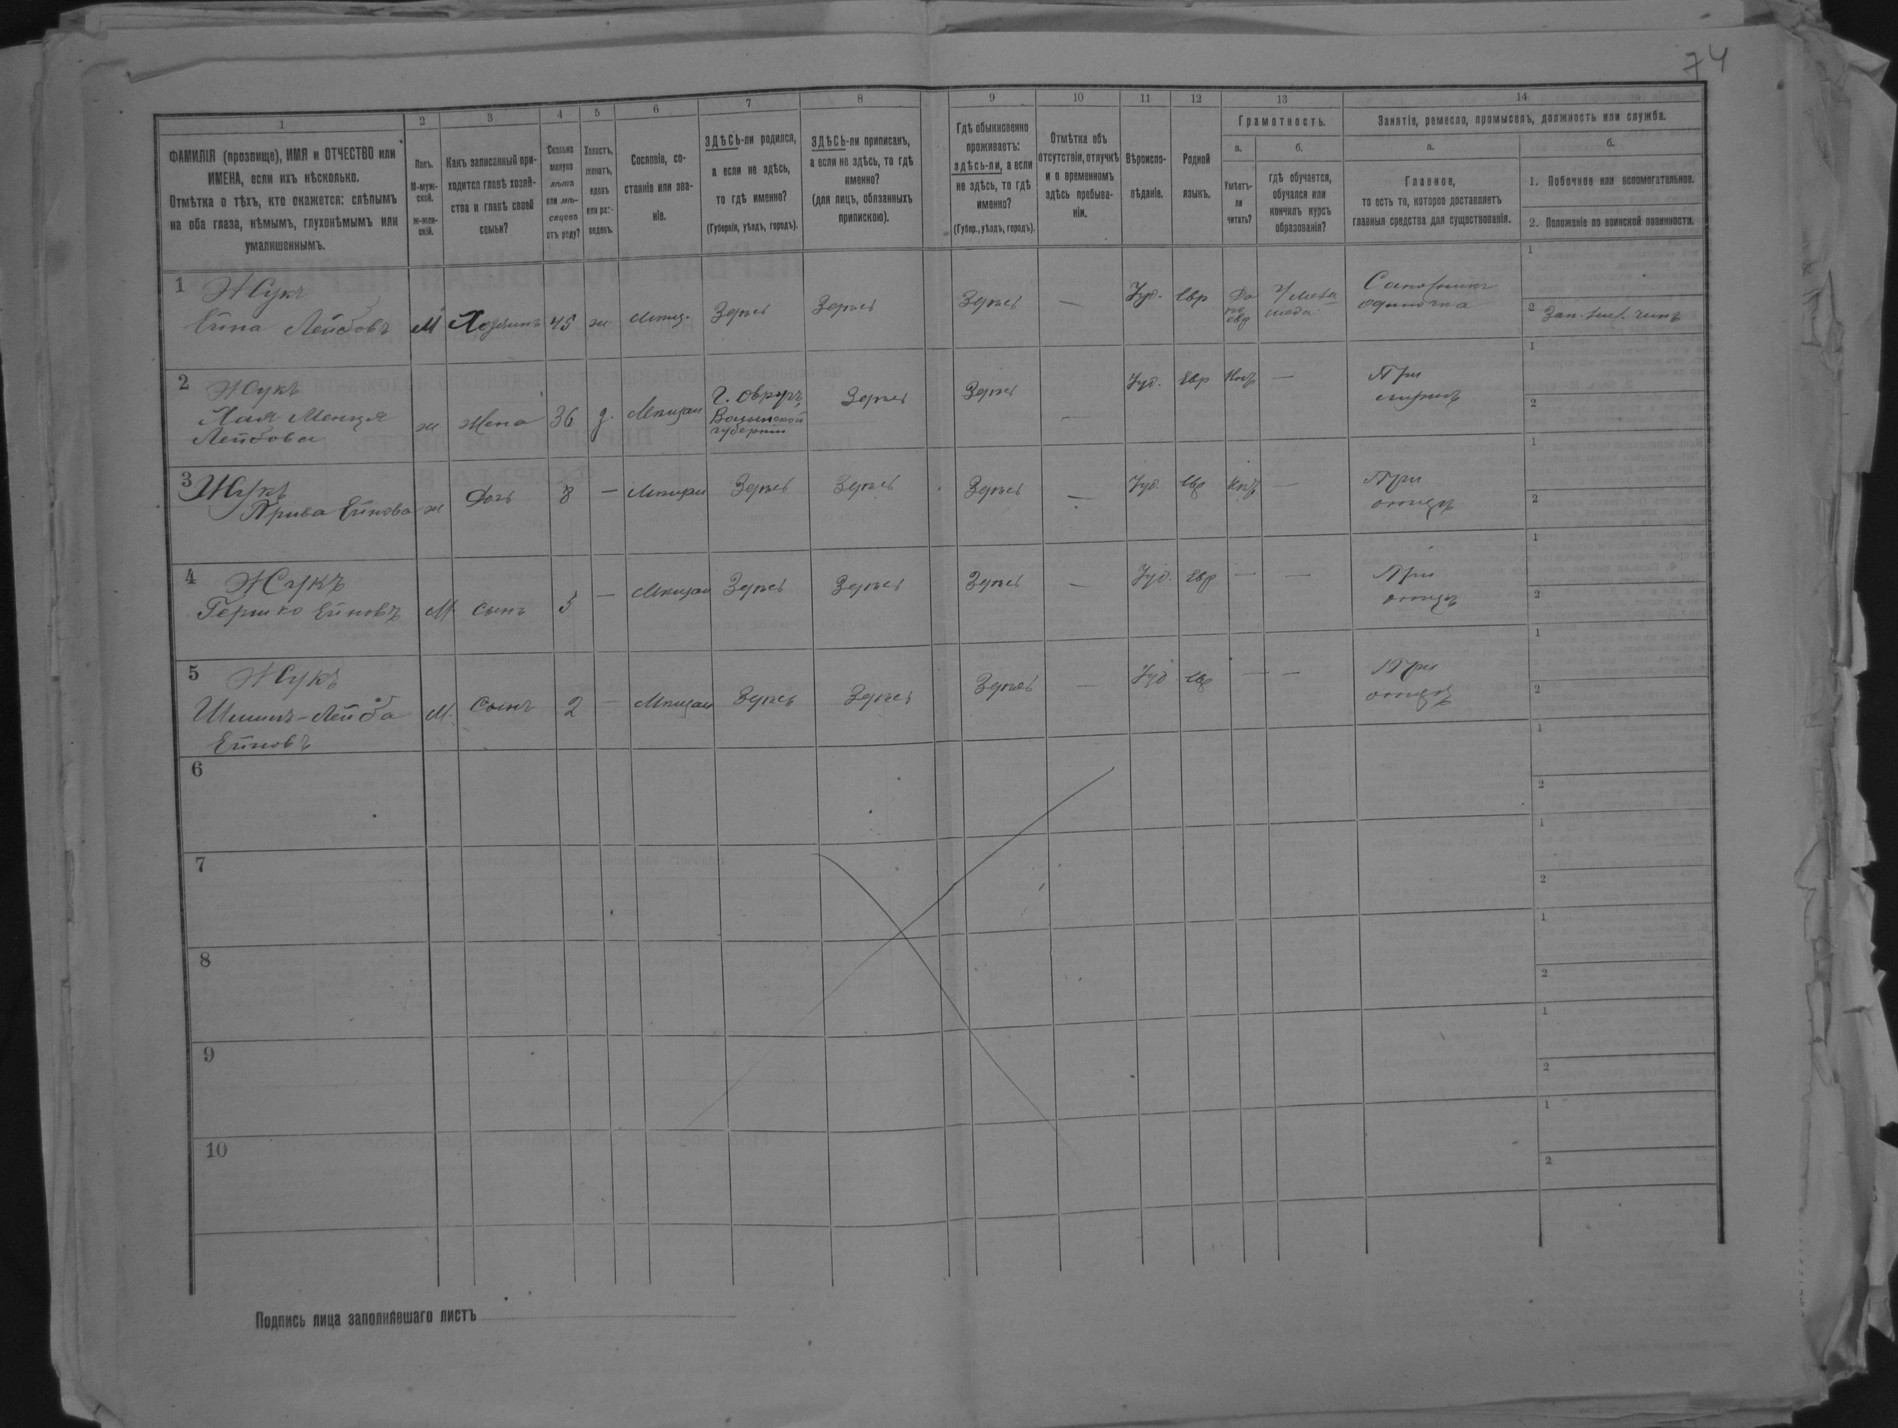 74
1 2 3 4 5 6 7 8 9 10 11 12 13 14
ФАМИЛІЯ (прозвище), ИМЯ и ОТЧЕСТВО или
ИМЕНА, если ихъ нѣсколько.
Отмѣтка о тѣхъ, кто окажется: слѣпымъ
на оба глаза, нѣмымъ, глухонѣмымъ или
умалишеннымъ.
Полъ.
М-муж-
ской.
Ж-жен-
скій.
Какъ записанный при-
ходится главѣ хозяй-
ства и главѣ своей
семьи?
Сколько
минуло
лѣтъ
или мѣ-
сяцевъ
отъ роду?
Холостъ,
женатъ,
вдовъ
или раз-
веденъ.
Сословіе, со-
стояніе или зва-
ніе.
ЗДѢСЬ-ли родился,
а если не здѣсь,
то гдѣ именно?
(Губернія, уѣздъ, городъ).
ЗДѢСЬ-ли приписанъ,
а если не здѣсь, то гдѣ
именно?
(для лицъ, обязанныхъ
припискою).
Гдѣ обыкновенно
проживаетъ:
здѣсь-ли, а если
не здѣсь, то гдѣ
именно?
(Губер., уѣздъ, городъ).
Отмѣтка объ
отсутствіи, отлучкѣ
и о временномъ
здѣсь пребыва-
ніи.
Вѣроиспо-
вѣданіе.
Родной
языкъ.
Грамотность.
а.
Умѣетъ-
ли
читать?
б.
гдѣ обучается,
обучался или
кончилъ курсъ
образованія?
Занятіе, ремесло, промыселъ, должность или служба.
а.
Главное,
то есть то, которое доставляетъ
главныя средства для существованія.
б.
1. Побочное или вспомогательное.
2. Положеніе по воинской повинности.
1 Жукъ
Ейна Лейбовъ М Хозяинъ 45 ж Мѣщ. Здѣсь Здѣсь Здѣсь — Іуд. Евр Да
по
евр
Сапожникъ
одиночка
1
2
2 Жукъ
Хая
Лейбова ж Жена 36 з. Мѣщан Г. Овручъ,
Волынской
губерніи
Здѣсь Здѣсь — Іуд. Евр Нѣтъ — При
мужѣ
1
2
3 Жукъ
Ейнова ж Дочь 8 — Мѣщан Здѣсь Здѣсь Здѣсь — Іуд. Евр Нѣтъ — При
отцѣ
1
2
4 Жукъ
Гершко Ейновъ М. Сынъ 5 — Мѣщан Здѣсь Здѣсь Здѣсь — Іуд. Евр — — При
отцѣ
1
2
5 Жукъ
Лейба М. Сынъ 2 — Мѣщан Здѣсь Здѣсь Здѣсь — Іуд Евр — — При
отцѣ
Ейновъ
1
2
6
1
2
7
1
2
8
1
2
9
1
2
10
1
2
Подпись лица заполнявшаго листъ